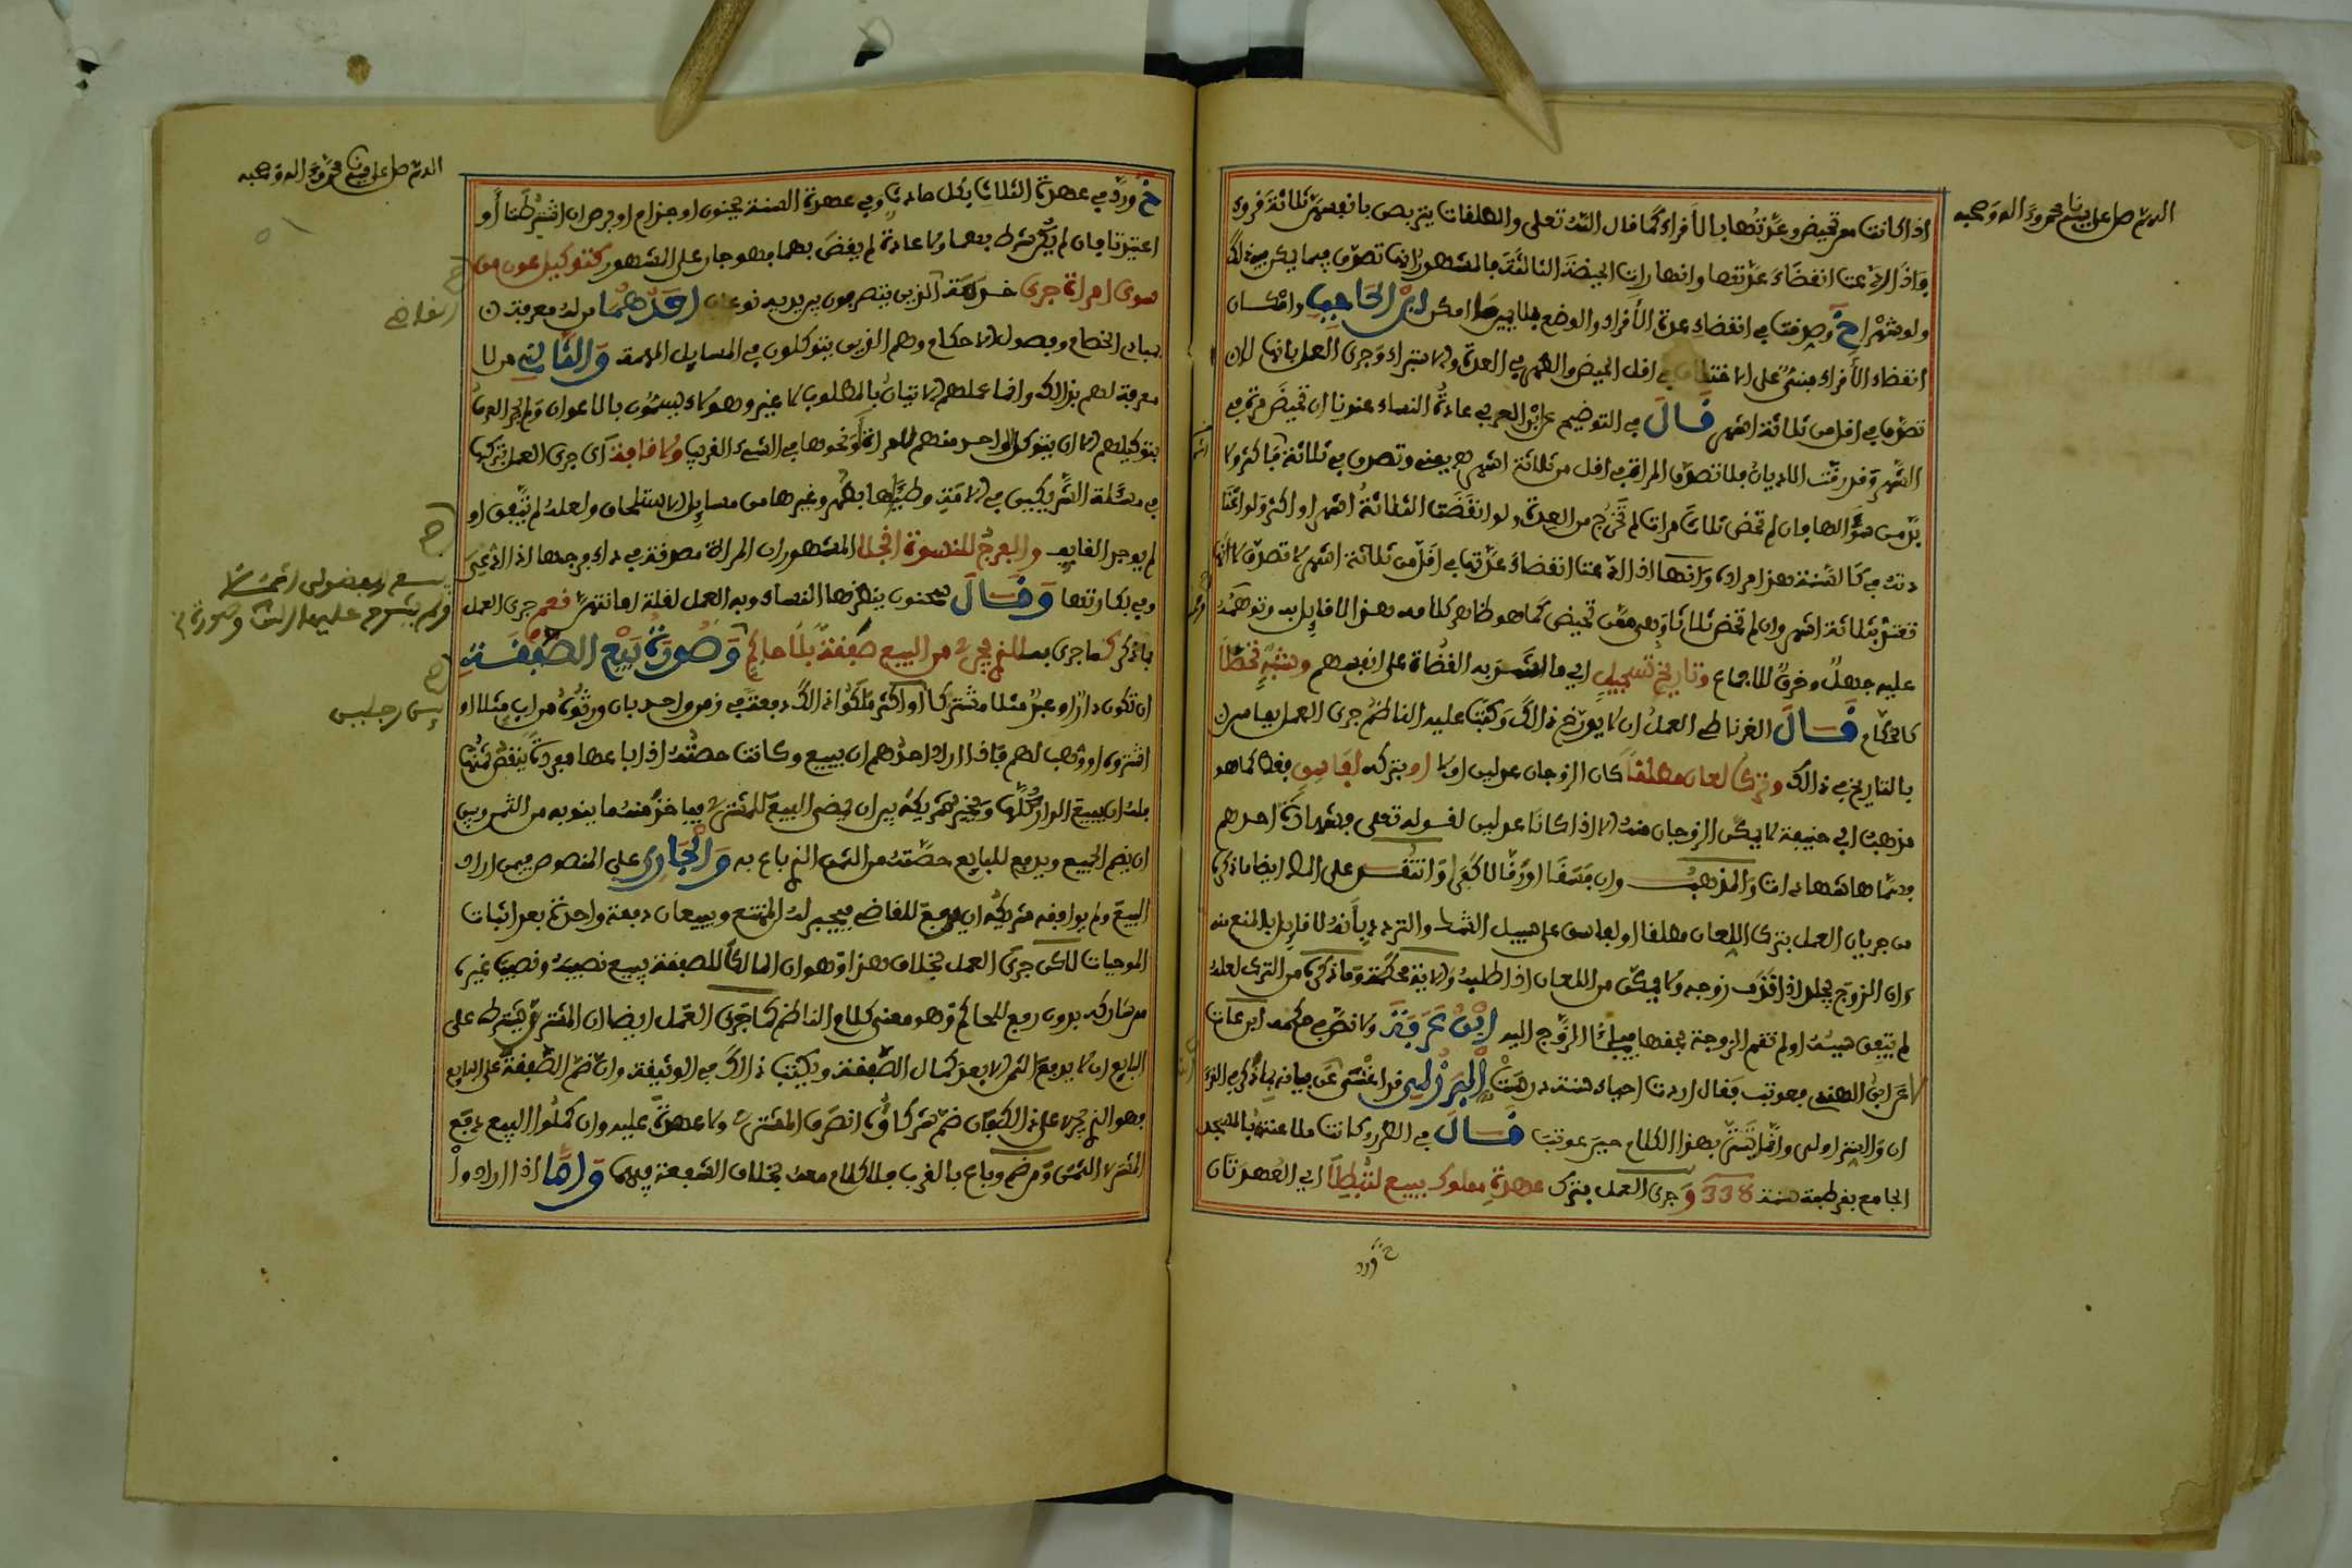 اللهم صل على سيدنا محمد وءاله وصحبه
اذا كانت ممن تحيض وعدتها بالأقراء كما قال الله تعلى والمطلقات يتربصن بانفسهن ثلاثة قروء
واذا ادعت انقضاء عدتها وانها رات الحيضة الثالثة فالمشهور انها تصدق فيما يمكن فيه ذلك
ولو شهر اخ وصدقت في انقضاء عدة الأقراء والوضع بلا يمين ما امكن ابن الحاجب وامكان
انقضاء الأقراء مبني على الاختلاف في اقل الحيض والطهر في العدة والاستبراء وجرى العمل بانها لان
تصدق في اقل من ثلاثة اشهر قال في التوضيح عن ابن العربي عادة النساء عندنا ان تحيض مرة في
الشهر وقد رقت الاديان فلا تصدق المرأة في اقل من ثلاثة اشهر هـ يعني وتصدق في ثلاثة فاكثر ولا
بد من سؤالها فان لم تحض ثلاث مرات لم تخرج من العدة ولو انقضت الثلاثة اشهر او اكثر ولو
كالسنة هذا مراده وانها اذا ادعت انقضاء عدتها في اقل من ثلاثة اشهر لا تصدق لا انها
تعتد بثلاثة اشهر وان لم تحض ثلاثا وهي ممن تحيض كما هو ظاهر كلامه هذا لا قايل به وتوهمه
عليه جهل وخرق للاجماع وتاريخ تسجيل اي ما اشهد به القضاة على انفسهم وشبه تخطا
كالحكم قال الغرناطي العمل ان لا يورخ ذالك وكتب عليه الناظم جرى العمل بفاس
بالتاريخ في ذالك وترك لعان مطلقا كان الزوجان عدلين او لا او يتركه لفاسق فقط كما هو
مذهب ابي حنيفة لا يمكن الزوجان منه الا اذا كانا عدلين لقوله تعلى فشهادة احدهم
فسماها شهادات والمذهب وان فسقا او رقا لا كفرا وانتقد على الناظم ايضا ما ذكره
من جريان العمل بترك اللعان مطلقا او لفاسق على سبيل الشك والتردد بأنه لا قايل بالمنع منه
وان الزوج يحد اذا قذف زوجه ولا يمكن من اللعان اذا طلبه والاية محكمة وما ذكره من الترك لعله
لم يتفق سببه او لم تقم الزوجة بحقها الزوج اليه ابن عرفة ولا نص في حكمه ابن عات
لاعن ابن الهندي فعوتب فقال اردت احياء سنة درست البرزلي قد اغنى عن بيانه بما ذكر في
ان والستر اولى وانما تستر بهذا الكلام حين عوتب قال في الطرر وكانت ملاعنته بالمسجد
الجامع بقرطبة سنة 338 وجرى العمل بترك عهدة مملوك ببيع لتبطلا اي العهدتان
خ ورد
اللهم صل على سيدنا محمد وءاله وصحبه
خ ورد في عهدة الثلاث بكل حادث وفي عهدة السنة بجنون او جذام او برص ان اشترطتا أو
اعتيدتا فان لم يكن شرط بهما ولا عادة لم يقض بهما وهو جار على المشهور كتوكيل عون من
سوى امراة جرى خدمة الذين يتصرفون بين يديه نوعان احدهما من له معرفة
بمبادئ الخصام وفصول الاحكام وهم الذين يتوكلون في المسايل المهمة والثاني من لا
معرفة لهم بذالك وانما عملهم الاتيان بالمطلوب لا غير وهؤلاء يسمون بالاعوان ولم يجر العرف
بتوكيلهم الا ان يتوكل الواحد منهم للمراة ونحوها في الشيء القريب ولا قافة اي جرى العمل بتركها
في مسئلة الشريكين في الامة وطئاها بطهر وغيرها من مسايل الاستلحاق ولعله لم يتفق او
لم يوجد القايف والفرج للنسوة انجلا المشهور ان المراة مصدقة في داء فرجها اذا ادعي
وفي بكارتها وقال سحنون ينظرها النساء وبه العمل لقلة امانتهن فعم جرى العمل
بما ذكر كما جرى بالذي يجري من البيع صفقة بلا حاكم وصورة بيع الصفقة
ان تكون دارا او عبد مثلا مشتركا او اكثر ملكوا ذالك دفعة في زمن واحد بان ورثوه من اب مثلا او
اشتروه او وهب لهم فاذا اراد احدهم ان يبيع وكانت حصته اذا باعها مفردة ينقص ثمنها
فله ان يبيع الدار كلها ويخير شريكه بين ان يمضي البيع للمشتري فياخذ منه ما ينوبه من الثمن وبين
ان يضم المبيع ويدفع للبايع حصته من الثمن الذي باع به والجاري على المنصوص فيمن اراد
البيع ولم يوافقه شريكه ان يرفع للقاضي فيجبر له الممتنع ويبيعان دفعة واحدة بعد اثبات
الموجبات لاكن جرى العمل بخلاف هذا وهو ان المالك للصفقة يبيع نصيبه ونصيب غيره
من شاركه بدون رفع للحاكم وهو معنى كلام الناظم كما جرى العمل ايضا ان المشتري يشترط على
البايع ان لا يدفع الثمن الا بعد كمال الصفقة ويكتب ذالك في الوثيقة وان ضم الصفقة على البايع
فهو الذي يجري على ذالك فان ضم شركاؤه انصرف المشتري ولا عهدة عليه وان كملوا البيع دفع
المشتري الثمن ومن ضم وباع بالقرب فلا كلام معه بخلاف الشفعة فيهما واما اذا اراد